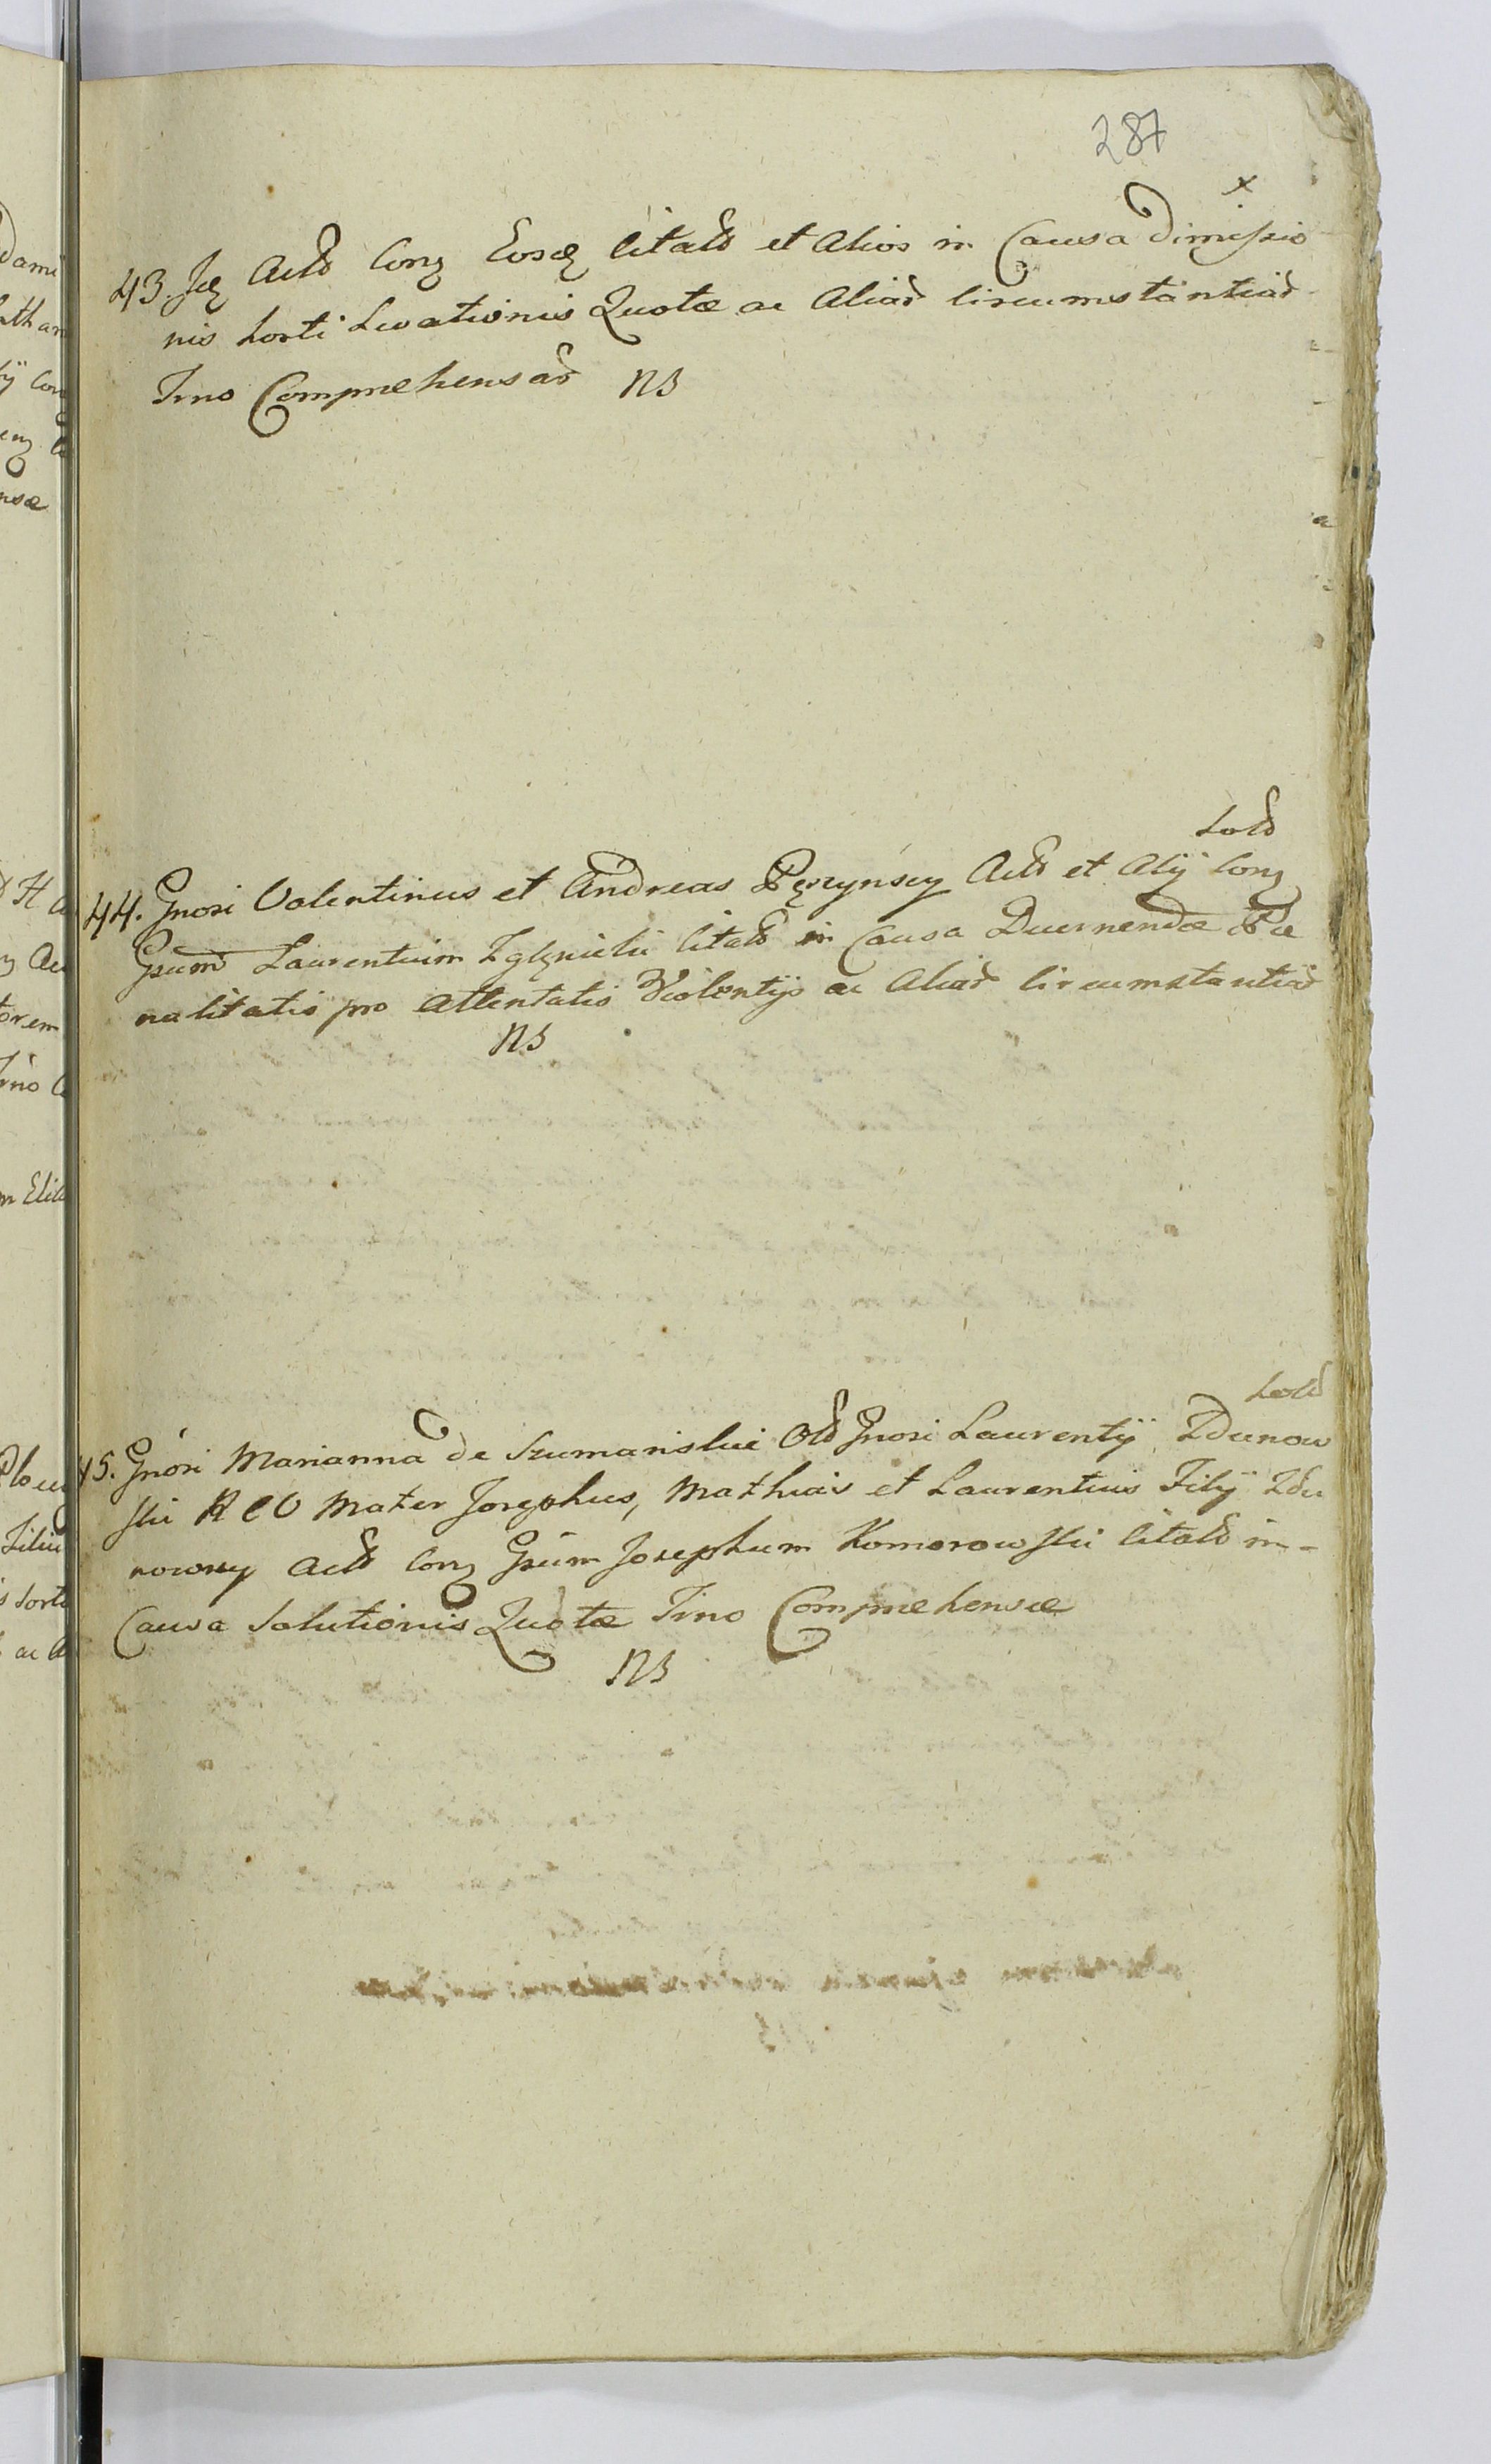 287
x
43. Jdq Actd Conq Eosdq Citatd et Alios in Causa Dimissio
nis Sorti Levationis Quotæ ac Aliad Circumstantiad
Tıno Compræhensad NS
Sold
44. Gnosi Valentinus et Andreas Pęczynscy Actd et Alÿ Conq
Gsum Laurentium Zglynicki Citatd in Causa Decernendæ Pæ
nalitatis pro attentatis Violentÿs ac Aliad Circumstantiad
NS
Sold
45. Gnosi Marianna de Szumanskie Old Gnosi Laurentÿ Zdunow
ski RCV Mater Josephus, Mathias et Laurentius Filÿ Zdu
nowscy Actd Conq Gsum Josephum Komorowski Citatd in -
Causa Solutionis Quotæ Tıno Compræhensæ
NS